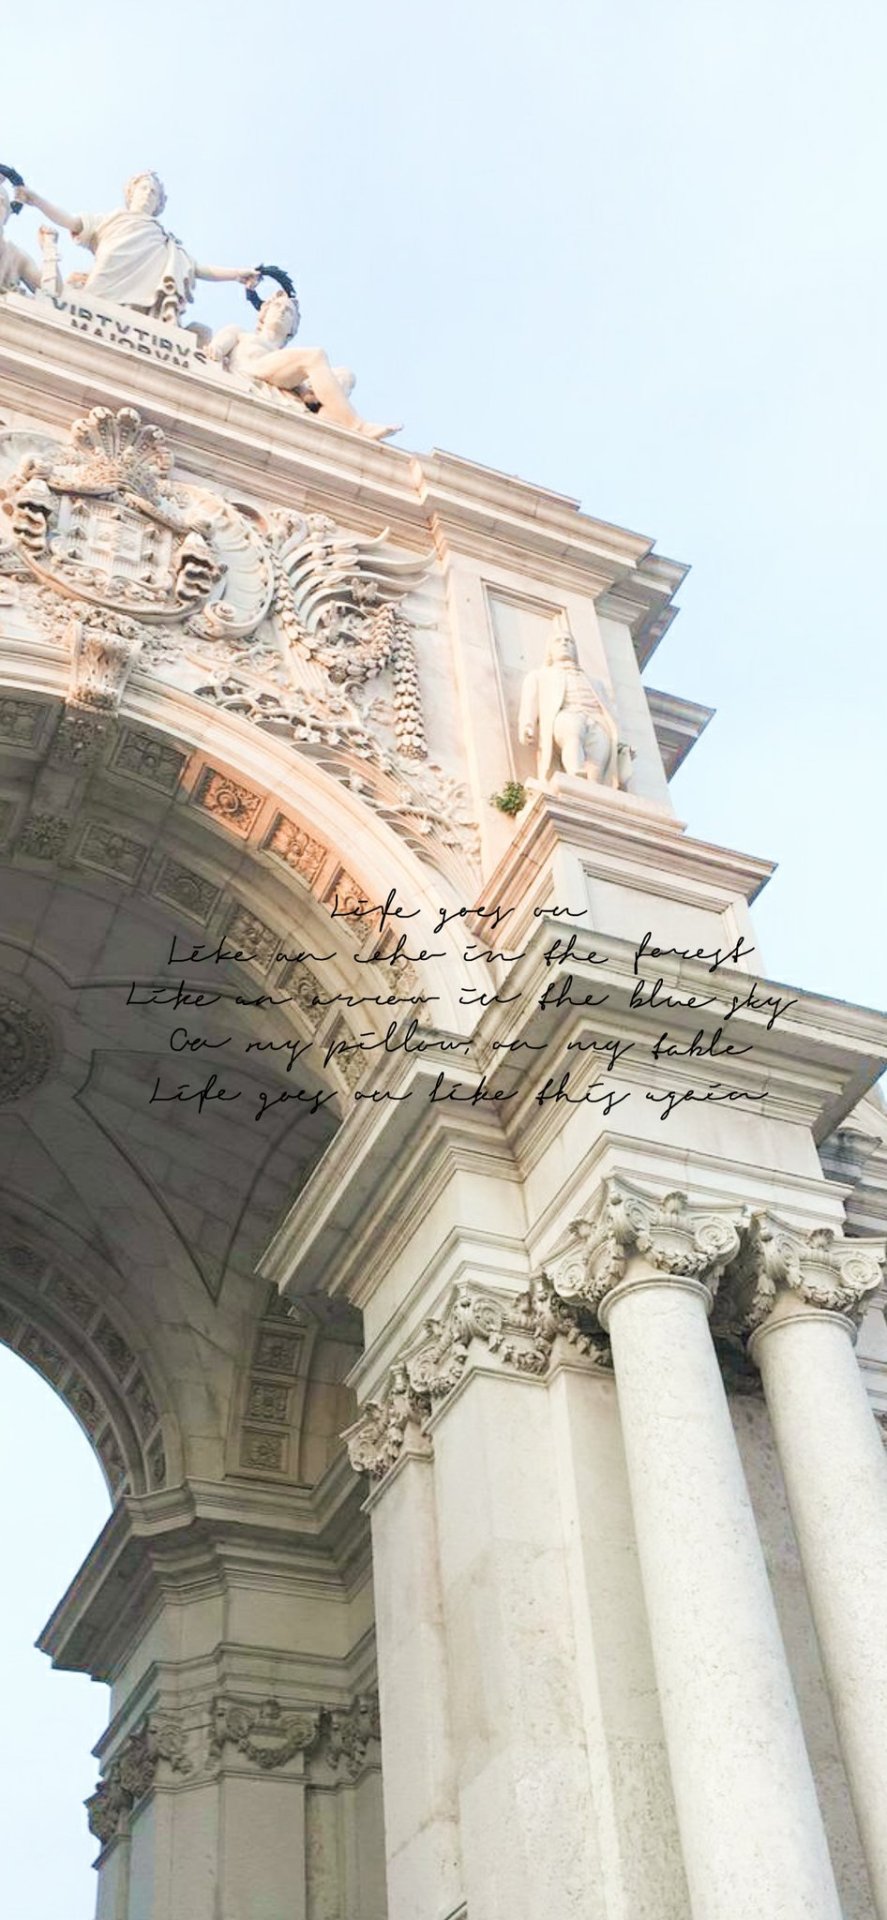 VIRTVTIBVS
MAIORVM
Life goes on
Like an echo in the forest
Like an arrow in the blue sky
On my pillow, on my table
Life goes on like this again